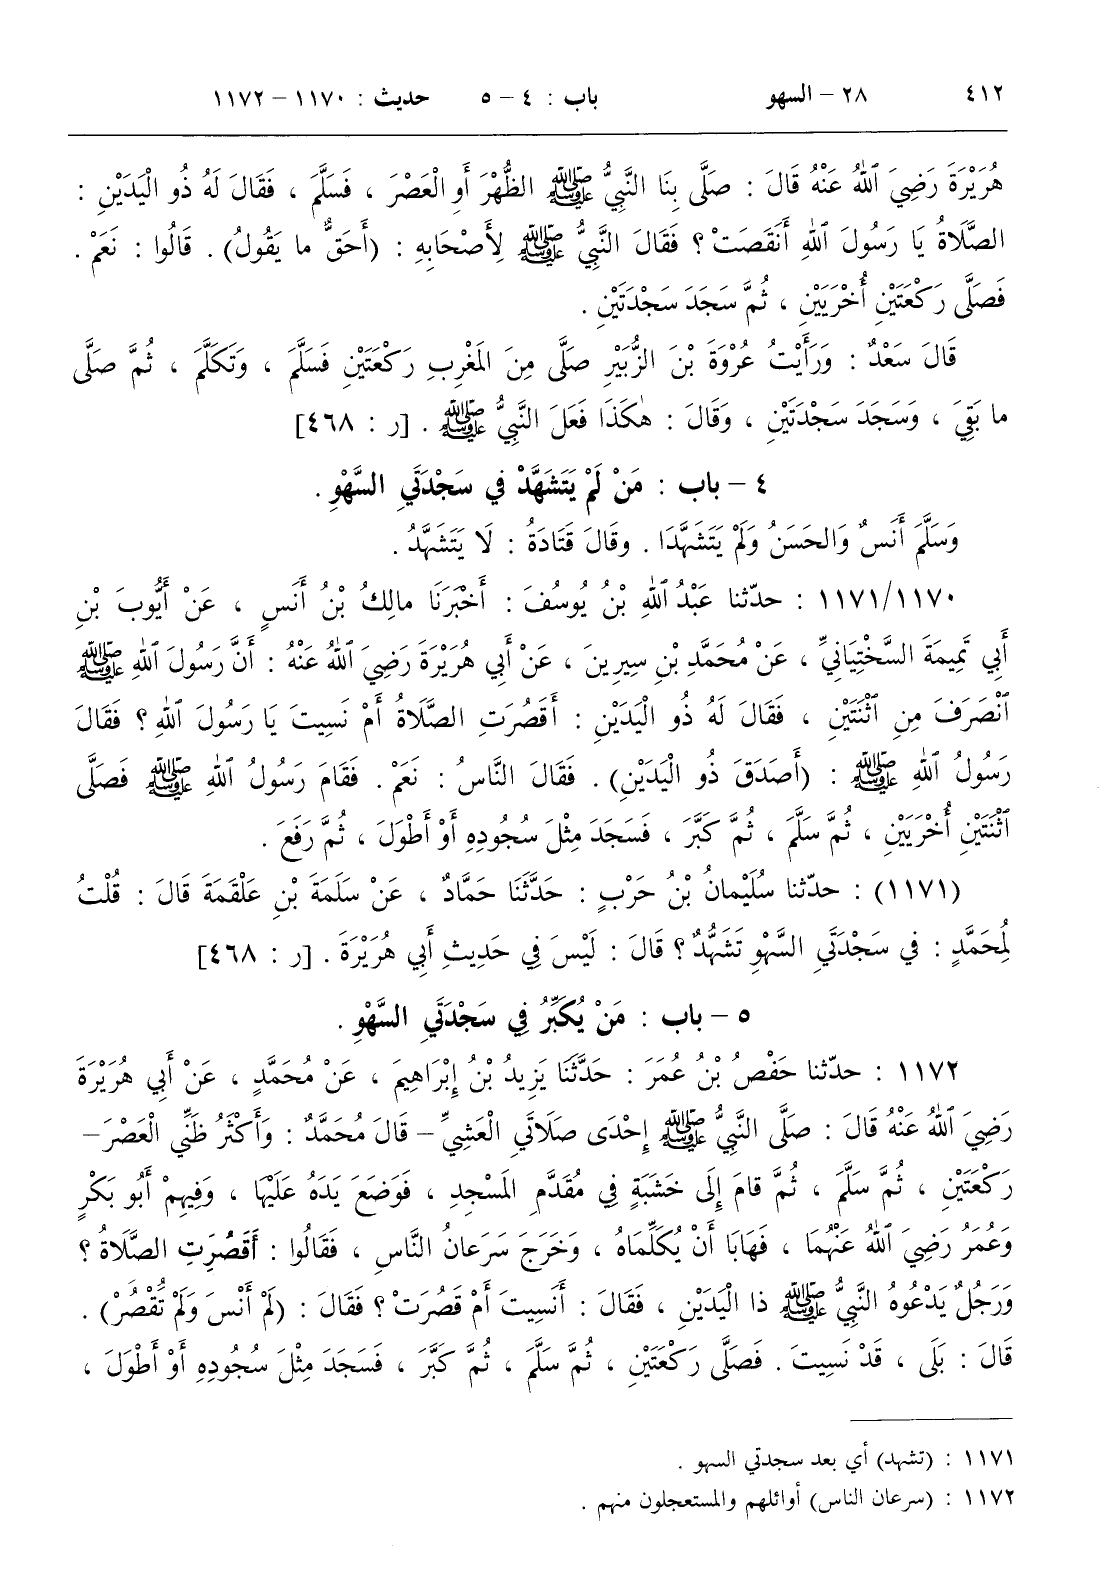 ٤١٢ ٢٨ – السهو باب : ٤ – ٥ حديث : ١١٧٠ – ١١٧٢
هُرَيْرَةَ رَضِيَ ٱللهُ عَنْهُ قَالَ : صَلَّى بِنَا النَّبِيُّ ﷺ الظُّهْرَ أَوِ الْعَصْرَ ، فَسَلَّمَ ، فَقَالَ لَهُ ذُو الْيَدَيْنِ :
الصَّلَاةُ يَا رَسُولَ ٱللهِ أَنَقَصَتْ ؟ فَقَالَ النَّبِيُّ ﷺ لِأَصْحَابِهِ : (أَحَقٌّ ما يَقُولُ) . قَالُوا : نَعَمْ .
فَصَلَّى رَكْعَتَيْنِ أُخْرَيَيْنِ ، ثُمَّ سَجَدَ سَجْدَتَيْنِ .
قَالَ سَعْدٌ : وَرَأَيْتُ عُرْوَةَ بْنَ الزُّبَيْرِ صَلَّى مِنَ المَغْرِبِ رَكْعَتَيْنِ فَسَلَّمَ ، وَتَكَلَّمَ ، ثُمَّ صَلَّى
ما بَقِيَ ، وَسَجَدَ سَجْدَتَيْنِ ، وَقَالَ : هٰكَذَا فَعَلَ النَّبِيُّ ﷺ . [ر : ٤٦٨]
٤ – باب : مَنْ لَمْ يَتَشَهَّدْ في سَجْدَتَيِ السَّهْوِ .
وَسَلَّمَ أَنَسٌ وَالحَسَنُ وَلَمْ يَتَشَهَّدَا . وقَالَ قَتَادَةُ : لَا يَتَشَهَّدُ .
١١٧١/١١٧٠ : حدّثنا عَبْدُ ٱللهِ بْنُ يُوسُفَ : أَخْبَرَنَا مالِكُ بْنُ أَنَسٍ ، عَنْ أَيُّوبَ بْنِ
أَبِي تَمِيمَةَ السَّخْتِيَانِيِّ ، عَنْ مُحَمَّدِ بْنِ سِيرِينَ ، عَنْ أَبِي هُرَيْرَةَ رَضِيَ ٱللهُ عَنْهُ : أَنَّ رَسُولَ ٱللهِ ﷺ
ٱنْصَرَفَ مِنِ ٱثْنَتَيْنِ ، فَقَالَ لَهُ ذُو الْيَدَيْنِ : أَقَصُرَتِ الصَّلَاةُ أَمْ نَسِيتَ يَا رَسُولَ ٱللهِ ؟ فَقَالَ
رَسُولُ ٱللهِ ﷺ : (أَصَدَقَ ذُو الْيَدَيْنِ) . فَقَالَ النَّاسُ : نَعَمْ . فَقَامَ رَسُولُ ٱللهِ ﷺ فَصَلَّى
ٱثْنَتَيْنِ أُخْرَيَيْنِ ، ثُمَّ سَلَّمَ ، ثُمَّ كَبَّرَ ، فَسَجَدَ مِثْلَ سُجُودِهِ أَوْ أَطْوَلَ ، ثُمَّ رَفَعَ .
(١١٧١) : حدّثنا سُلَيْمانُ بْنُ حَرْبٍ : حَدَّثَنَا حَمَّادٌ ، عَنْ سَلَمَةَ بْنِ عَلْقَمَةَ قَالَ : قُلْتُ
لِمُحَمَّدٍ : في سَجْدَتَيِ السَّهْوِ تَشَهُّدٌ ؟ قَالَ : لَيْسَ فِي حَدِيثِ أَبِي هُرَيْرَةَ . [ر : ٤٦٨]
٥ – باب : مَنْ يُكَبِّرُ فِي سَجْدَتَيِ السَّهْوِ .
١١٧٢ : حدّثنا حَفْصُ بْنُ عُمَرَ : حَدَّثَنَا يَزِيدُ بْنُ إِبْرَاهِيمَ ، عَنْ مُحَمَّدٍ ، عَنْ أَبِي هُرَيْرَةَ
رَضِيَ ٱللهُ عَنْهُ قَالَ : صَلَّى النَّبِيُّ ﷺ إِحْدَى صَلَاتَيِ الْعَشِيِّ – قَالَ مُحَمَّدٌ : وَأَكْثَرُ ظَنِّي الْعَصْرَ –
رَكْعَتَيْنِ ، ثُمَّ سَلَّمَ ، ثُمَّ قامَ إِلَى خَشَبَةٍ فِي مُقَدَّمِ المَسْجِدِ ، فَوَضَعَ يَدَهُ عَلَيْهَا ، وَفِيهِمْ أَبُو بَكْرٍ
وَعُمَرُ رَضِيَ ٱللهُ عَنْهُمَا ، فَهَابَا أَنْ يُكَلِّمَاهُ ، وَخَرَجَ سَرَعانُ النَّاسِ ، فَقَالُوا : أَقَصُرَتِ الصَّلَاةُ ؟
وَرَجُلٌ يَدْعُوهُ النَّبِيُّ ﷺ ذا الْيَدَيْنِ ، فَقَالَ : أَنَسِيتَ أَمْ قَصُرَتْ ؟ فَقَالَ : (لَمْ أَنْسَ وَلَمْ تُقْصُرْ) .
قَالَ : بَلَى ، قَدْ نَسِيتَ . فَصَلَّى رَكْعَتَيْنِ ، ثُمَّ سَلَّمَ ، ثُمَّ كَبَّرَ ، فَسَجَدَ مِثْلَ سُجُودِهِ أَوْ أَطْوَلَ ،
١١٧١ : (تشهد) أي بعد سجدتي السهو .
١١٧٢ : (سرعان الناس) أوائلهم والمستعجلون منهم .